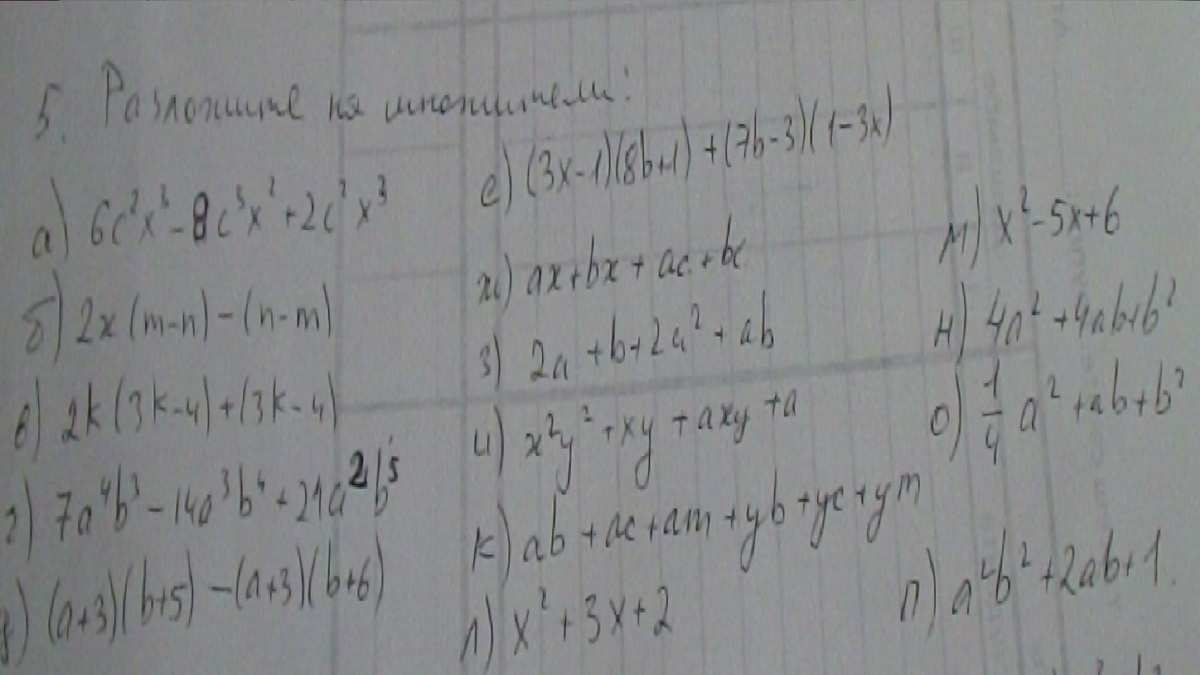 5. Разложите на множители:
а) 6c²x³ - 8c³x² + 2c²x³
б) 2x(m-n) - (n-m)
в) 2k(3k-4) + (3k-4)
г) 7a⁴b³ - 14a³b⁴ + 21a²b⁵
д) (a+3)(b+5) - (a+3)(b+6)
е) (3x-1)(8b+1) + (7b-3)(1-3x)
ж) ax + bx + ac + bc
з) 2a + b + 2a² + ab
и) x²y² + xy + axy + a
к) ab + ac + am + yb + yc + ym
л) x² + 3x + 2
м) x² - 5x + 6
н) 4a² + 4ab + b²
о) 1/4 a² + ab + b²
п) a²b² + 2ab + 1.